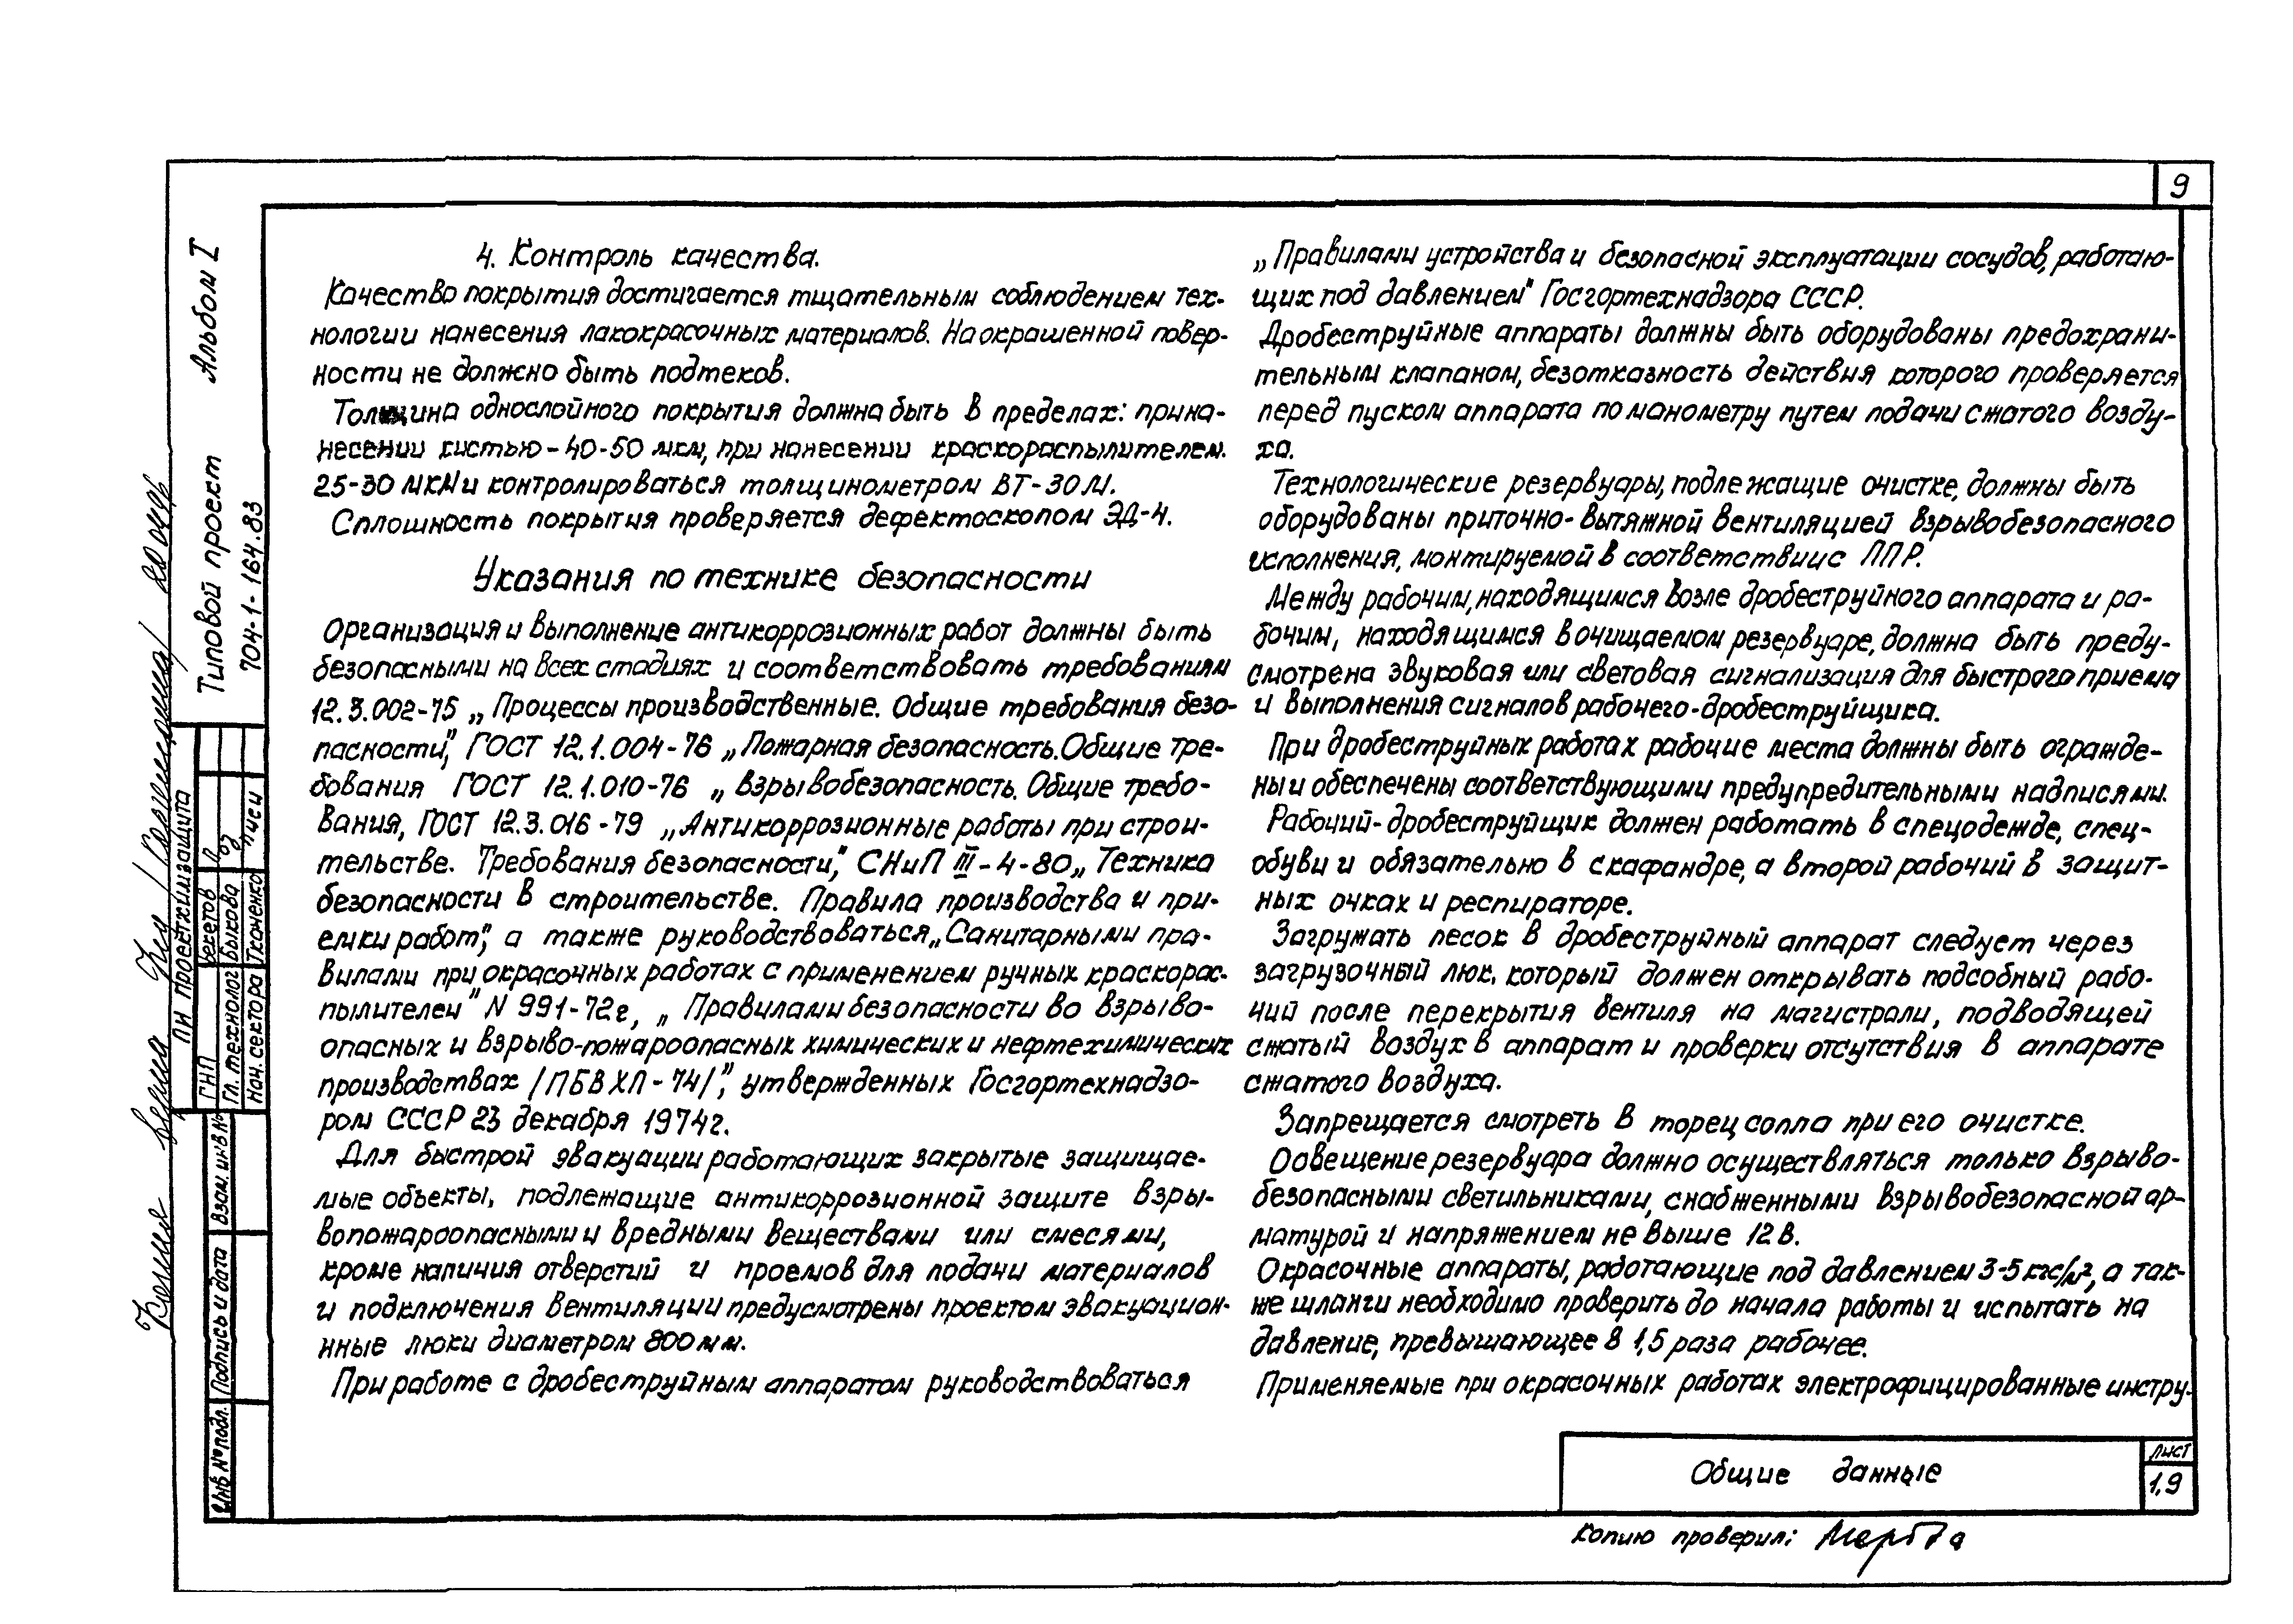 9
4. Контроль качества.
Качество покрытия достигается тщательным соблюдением тех-
нологии нанесения лакокрасочных материалов. На окрашенной повер-
ности не должно быть подтеков.
Толщина однослойного покрытия должна быть в пределах: при на-
несении кистью-40-50 мкм, при нанесении краскораспылителем.
25-30 мкм и контролироваться толщинометром ВТ-30М.
Сплошность покрытия проверяется дефектоскопом ЭД-4.
Указания по технике безопасности
Организация и выполнение антикоррозионных работ должны быть
безопасными на всех стадиях и соответствовать требованиям
12.3.002-75 „Процессы производственные. Общие требования безо-
пасности", ГОСТ 12.1.004-76 „Пожарная безопасность. Общие тре-
бования ГОСТ 12.1.010-76 „Взрывобезопасность. Общие требо-
вания, ГОСТ 12.3.016-79 „Антикоррозионные работы при строи-
тельстве. Требования безопасности", СНиП III-4-80 „Техника
безопасности в строительстве. Правила производства и при-
емки работ", а также руководствоваться „Санитарными пра-
вилами при окрасочных работах с применением ручных краскорас-
пылителей" N 991-72г, „Правилами безопасности во взрыво-
опасных и взрыво-пожароопасных химических и нефтехимических
производствах /ПБВХП-74/", утвержденных Госгортехнадзо-
ром СССР 23 декабря 1974г.
Для быстрой эвакуации работающих закрытые защищае-
мые объекты, подлежащие антикоррозионной защите взры-
вопожароопасными и вредными веществами или смесями,
кроме наличия отверстий и проемов для подачи материалов
и подключения вентиляции предусмотрены проектом эвакуацион-
нные люки диаметром 800мм.
При работе с дробеструйным аппаратом руководствоваться
„Правилами устройства и безопасной эксплуатации сосудов, работаю-
щих под давлением" Госгортехнадзора СССР.
Дробеструйные аппараты должны быть оборудованы предохрани-
тельным клапаном, безотказность действия которого проверяется
перед пуском аппарата по манометру путем подачи сжатого возду-
ха.
Технологические резервуары, подлежащие очистке, должны быть
оборудованы приточно-вытяжной вентиляцией взрывобезопасного
исполнения, монтируемой в соответствиис ППР.
Между рабочим, находящимся возле дробеструйного аппарата и ра-
бочим, находящимся в очищаемом резервуаре, должна быть преду-
смотрена звуковая или световая сигнализация для быстрого приема
и выполнения сигналов рабочего-дробеструйщика.
При дробеструйных работах рабочие места должны быть огражде-
ны и обеспечены соответствующими предупредительными надписями.
Рабочий-дробеструйщик должен работать в спецодежде, спец-
обуви и обязательно в скафандре, а второй рабочий в защит-
ных очках и респираторе.
Загружать песок в дробеструйный аппарат следует через
загрузочный люк, который должен открывать подсобный рабо-
чий после перекрытия вентиля на магистрали, подводящей
сжатый воздух в аппарат и проверки отсутствия в аппарате
сжатого воздуха.
Запрещается смотреть в торец сопла при его очистке.
Освещение резервуара должно осуществляться только взрыво-
безопасными светильниками, снабженными взрывобезопасной ар-
матурой и напряжением не выше 12 в.
Окрасочные аппараты, работающие под давлением 3-5 кгс/м², а так-
же шланги необходимо проверить до начала работы и испытать на
давление, превышающее в 1,5 раза рабочее.
Применяемые при окрасочных работах электрофицированные инстру-
Общие данные
лист
1.9
Копию проверил:
Альбом I
Типовой проект
704-1-164.83
ПИ Проектхимзащита
ГНП
Гл. технолог Быкова
Нач. сектора Ткаченко
Взам. инв №
Подпись и дата
Инв № подл.
Копия верна